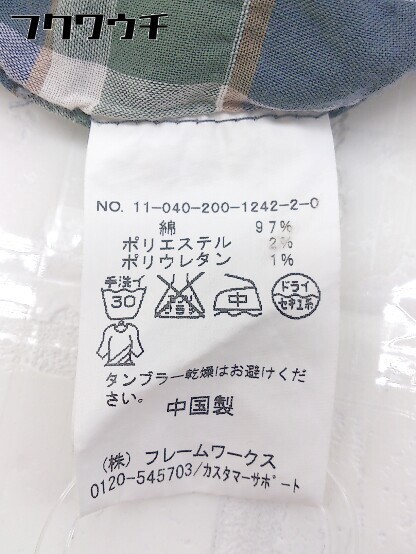 フクワウチ
NO. 11-040-200-1242-2-0
綿 97%
ポリエステル 2%
ポリウレタン 1%
手洗イ 30 エンソサラシ 中 ドライ セキユ系
タンブラー乾燥はお避けくだ
さい。
中国製
(株) フレームワークス
0120-545703/カスタマーサポート